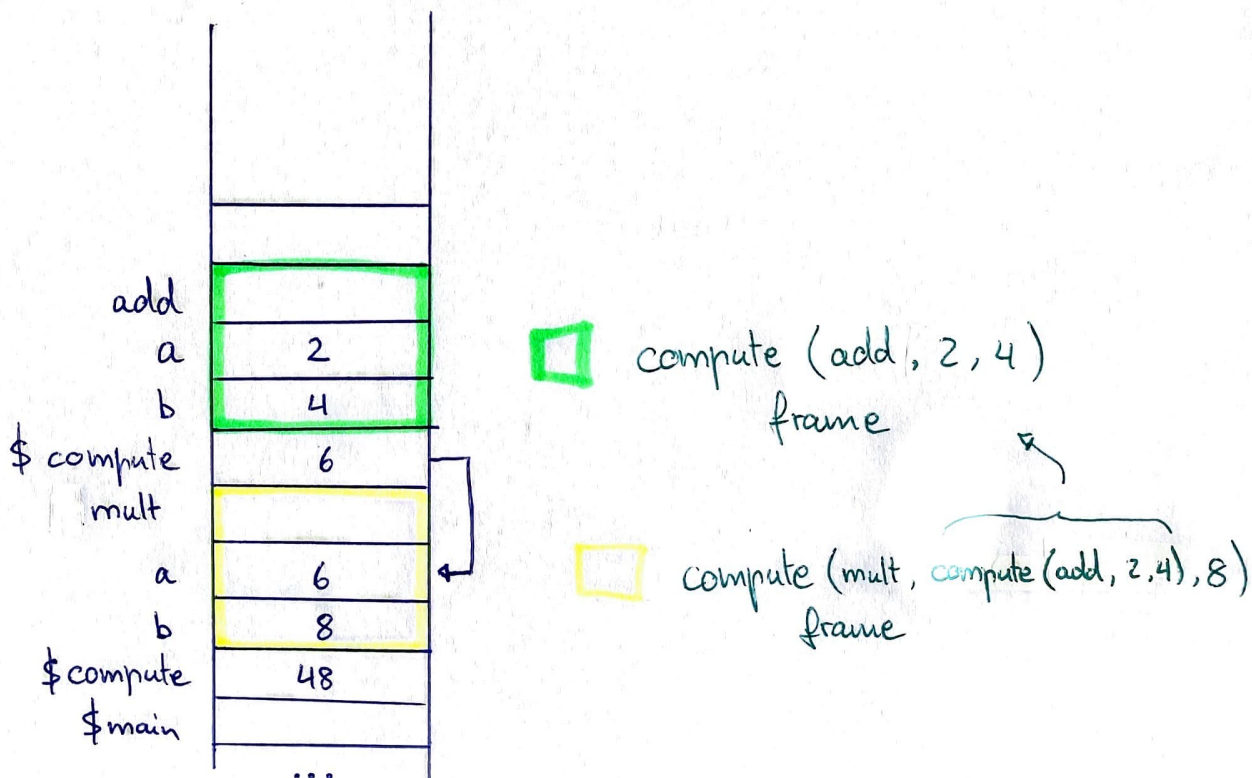 add
a 2
b 4
$ compute 6
mult
a 6
b 8
$ compute 48
$ main
...
compute (add, 2, 4)
frame
compute (mult, compute (add, 2, 4), 8)
frame